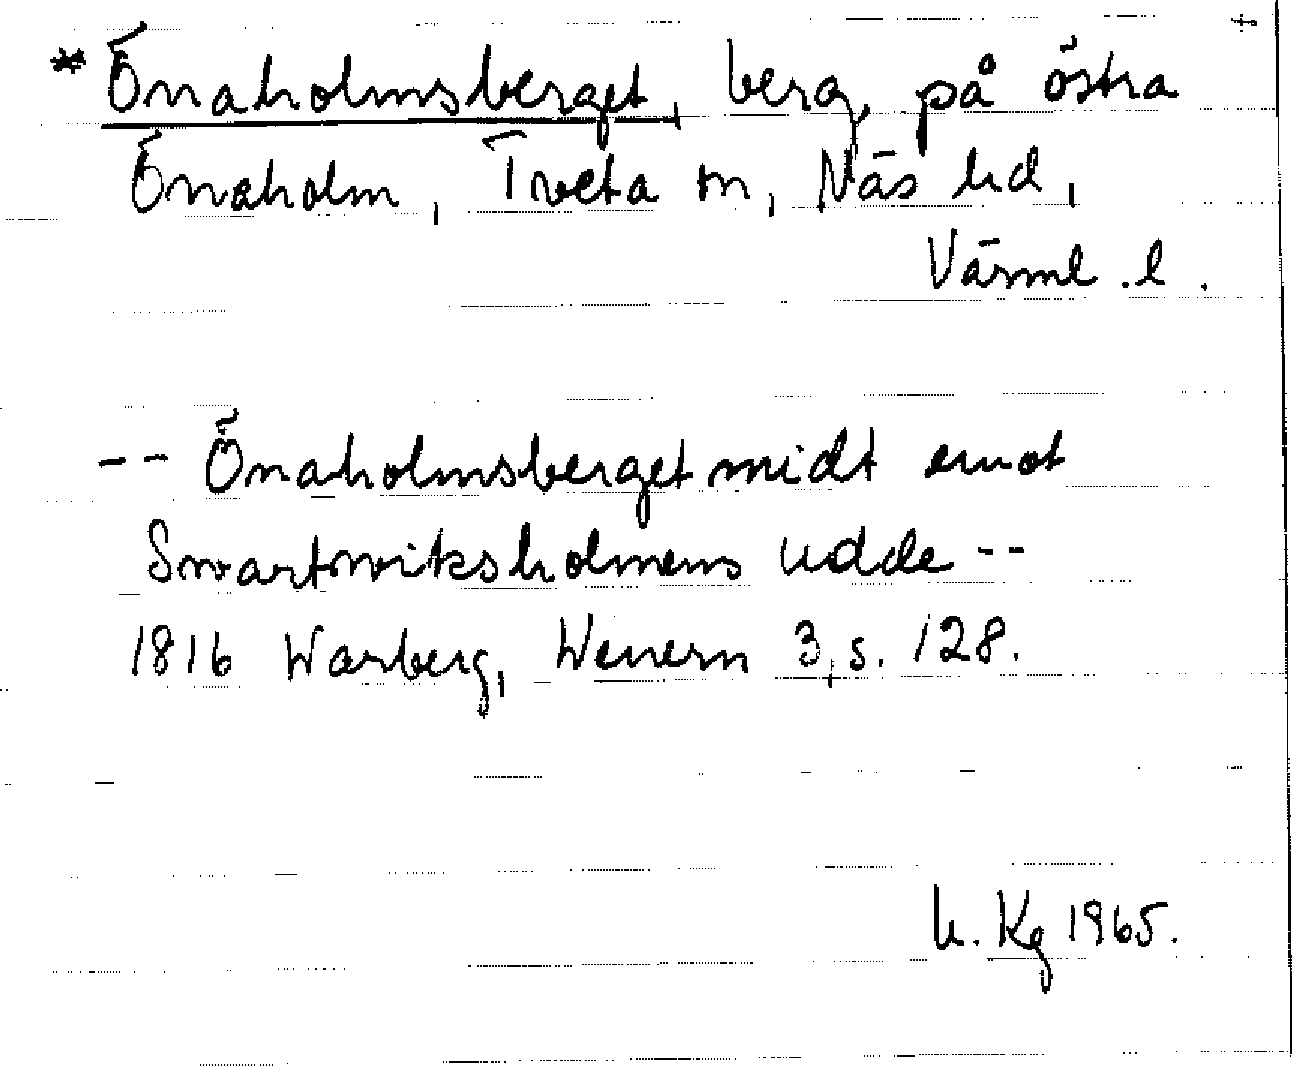 * Önaholmsberget, berg, på östra
Önaholm, Tveta sn, Näs hd,
Värml. l.
-- Önaholmsberget midt emot
Swartwiksholmens udde --
1816 Warberg, Wenern 3, s. 128.
U. Kg 1965.